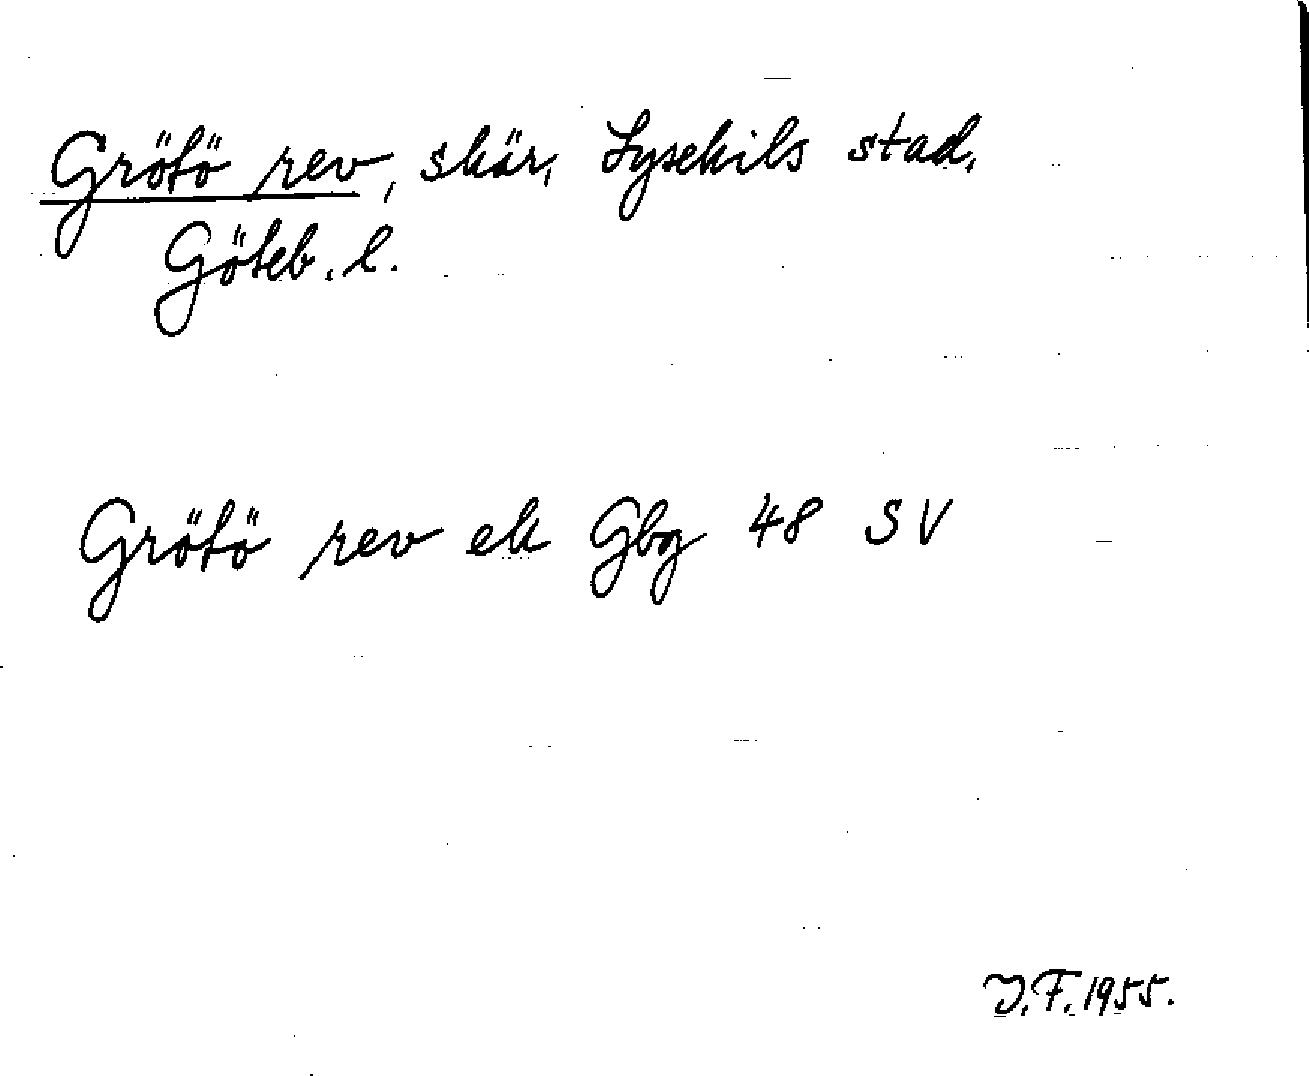 Grötö rev, skär, Lysekils stad,
Göteb. l.
Grötö rev ek Gbg 48 SV
I.F. 1955.